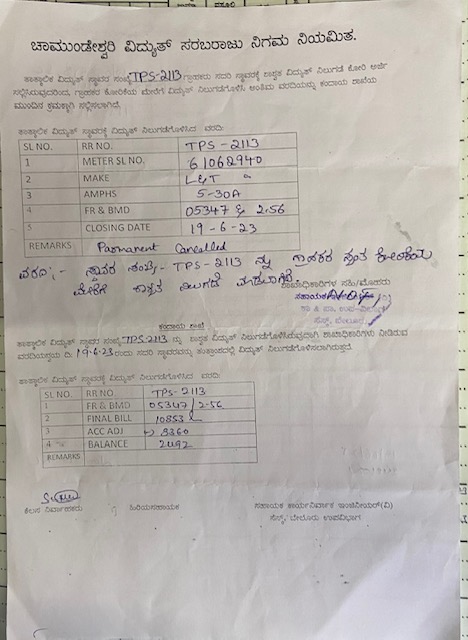 ಚಾಮುಂಡೇಶ್ವರಿ ವಿದ್ಯುತ್ ಸರಬರಾಜು ನಿಗಮ ನಿಯಮಿತ.
ತಾತ್ಕಾಲಿಕ ವಿದ್ಯುತ್ ಸ್ಥಾವರ ಸಂಖ್ಯೆ TPS-2113 ಗ್ರಾಹಕರು ಸದರಿ ಸ್ಥಾವರಕ್ಕೆ ಶಾಶ್ವತ ವಿದ್ಯುತ್ ನಿಲುಗಡೆ ಕೋರಿ ಅರ್ಜಿ
ಸಲ್ಲಿಸಿರುವುದರಿಂದ, ಗ್ರಾಹಕರ ಕೋರಿಕೆಯ ಮೇರೆಗೆ ವಿದ್ಯುತ್ ನಿಲುಗಡೆಗೊಳಿಸಿ ಅಂತಿಮ ವರದಿಯನ್ನು ಕಂದಾಯ ಶಾಖೆಯ
ಮುಂದಿನ ಕ್ರಮಕ್ಕಾಗಿ ಸಲ್ಲಿಸಲಾಗಿದೆ.
ತಾತ್ಕಾಲಿಕ ವಿದ್ಯುತ್ ಸ್ಥಾವರಕ್ಕೆ ವಿದ್ಯುತ್ ನಿಲುಗಡೆಗೊಳಿಸಿದ ವರದಿ:
SL NO. RR NO. TPS - 2113
1 METER SL NO. 61062940
2 MAKE L&T
3 AMPHS 5-30A
4 FR & BMD 05347 & 2.56
5 CLOSING DATE 19-6-23
REMARKS Parmanent Cancelled
ವರದಿ:- ಸ್ಥಾವರ ಸಂಖ್ಯೆ:- TPS-2113 ನ್ನು ಗ್ರಾಹಕರ ಸ್ವಂತ ಕೋರಿಕೆಯ
ಮೇರೆಗೆ ಶಾಶ್ವತ ನಿಲುಗಡೆ ಮಾಡಲಾಗಿದೆ
ಶಾಖಾಧಿಕಾರಿಗಳ ಸಹಿ/ಮೊಹರು
ಕಂದಾಯ ಶಾಖೆ
ತಾತ್ಕಾಲಿಕ ವಿದ್ಯುತ್ ಸ್ಥಾವರ ಸಂಖ್ಯೆ TPS-2113 ನ್ನು ಶಾಶ್ವತ ವಿದ್ಯುತ್ ನಿಲುಗಡೆಗೊಳಿಸಿರುವುದಾಗಿ ಶಾಖಾಧಿಕಾರಿಗಳು ನೀಡಿರುವ
ವರದಿಯನ್ವಯ ದಿ: 19-6-23 ರಂದು ಸದರಿ ಸ್ಥಾವರವನ್ನು ತಂತ್ರಾಂಶದಲ್ಲಿ ವಿದ್ಯುತ್ ನಿಲುಗಡೆಗೊಳಿಸಲಾಗಿರುತ್ತದೆ.
ತಾತ್ಕಾಲಿಕ ವಿದ್ಯುತ್ ಸ್ಥಾವರಕ್ಕೆ ವಿದ್ಯುತ್ ನಿಲುಗಡೆಗೊಳಿಸಿದ ವರದಿ:
SL NO. RR NO. TPS-2113
1 FR & BMD 05347 / 2.56
2 FINAL BILL 10853
3 ACC ADJ 8360
4 BALANCE 2492
REMARKS
ಕೆಲಸ ನಿರ್ವಾಹಕರು ಹಿರಿಯಸಹಾಯಕ ಸಹಾಯಕ ಕಾರ್ಯನಿರ್ವಾಹಕ ಇಂಜಿನೀಯರ್(ವಿ)
ಸೆಸ್ಕ್, ಬೇಲೂರು ಉಪವಿಭಾಗ